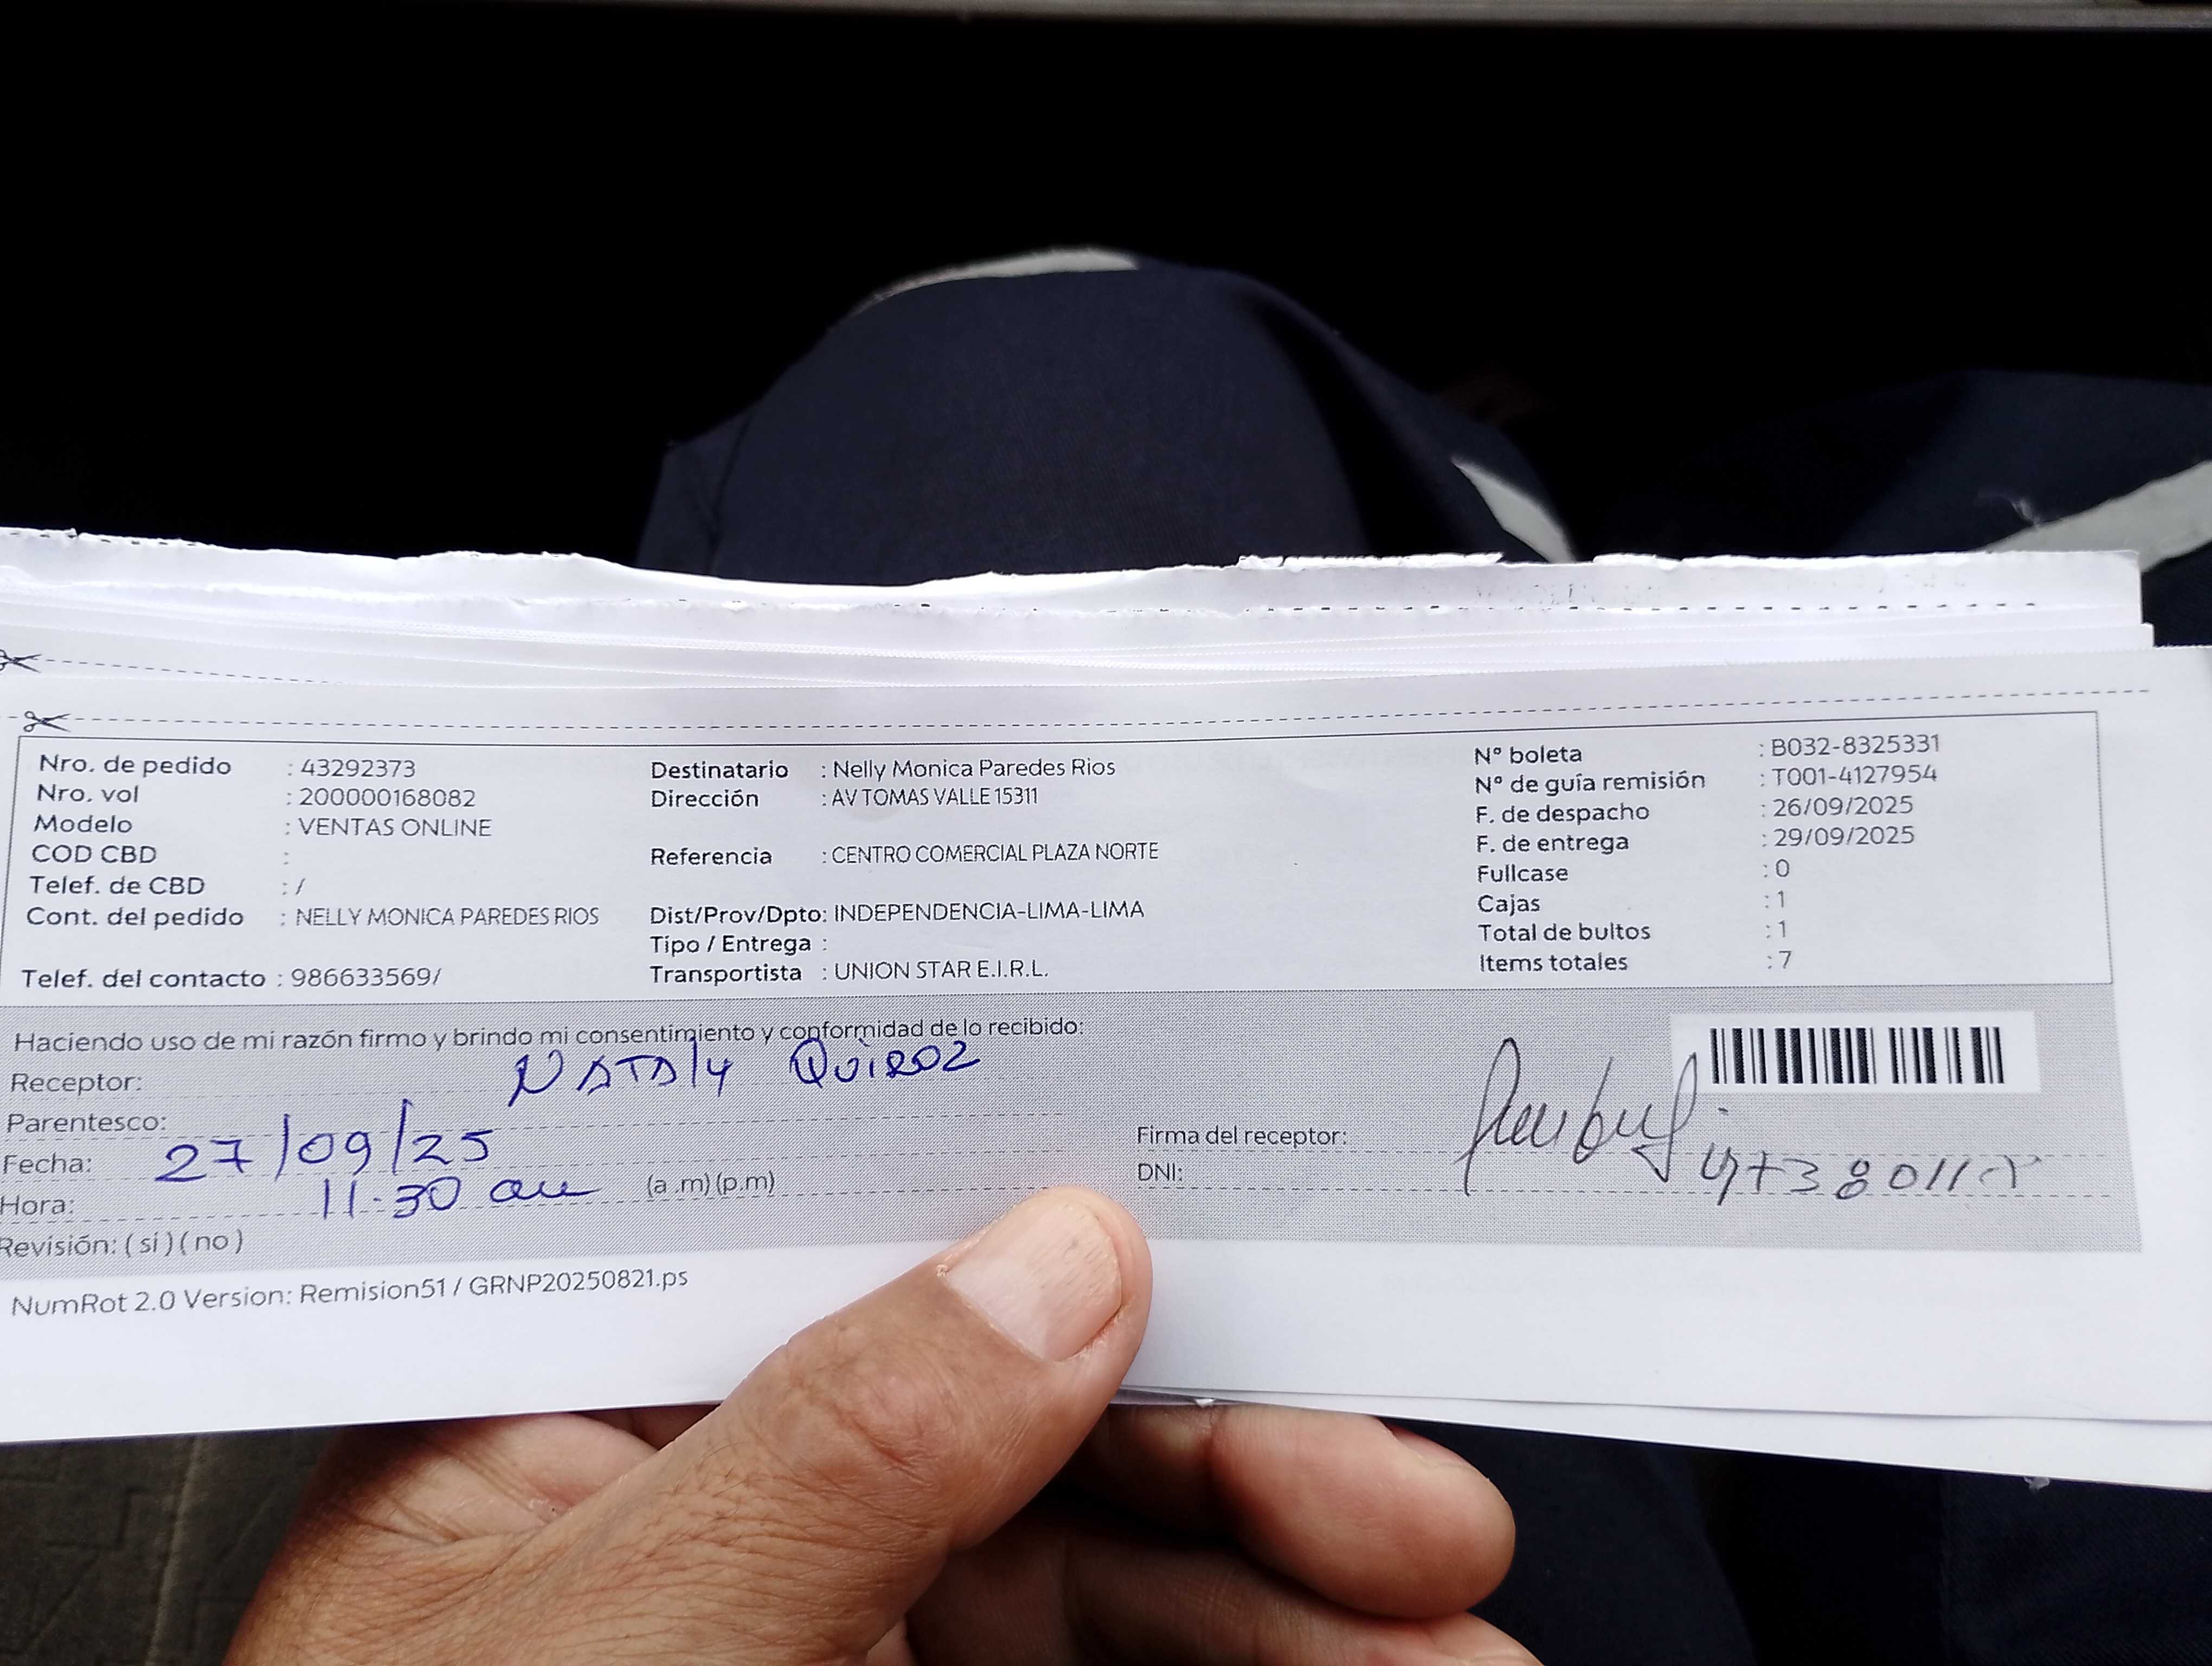 Nro. de pedido : 43292373
Nro. vol : 200000168082
Modelo : VENTAS ONLINE
COD CBD :
Telef. de CBD : /
Cont. del pedido : NELLY MONICA PAREDES RIOS
Telef. del contacto : 986633569/
Destinatario : Nelly Monica Paredes Rios
Dirección : AV TOMAS VALLE 15311
Referencia : CENTRO COMERCIAL PLAZA NORTE
Dist/Prov/Dpto: INDEPENDENCIA-LIMA-LIMA
Tipo / Entrega :
Transportista : UNION STAR E.I.R.L.
N° boleta : B032-8325331
N° de guía remisión : T001-4127954
F. de despacho : 26/09/2025
F. de entrega : 29/09/2025
Fullcase : 0
Cajas : 1
Total de bultos : 1
Items totales : 7
Haciendo uso de mi razón firmo y brindo mi consentimiento y conformidad de lo recibido:
Receptor: NATALY QUIROZ
Parentesco:
Fecha: 27/09/25
Hora: 11:30 am (a.m) (p.m)
Revisión: ( sí ) ( no )
Firma del receptor:
DNI:
NumRot 2.0 Version: Remision51 / GRNP20250821.ps